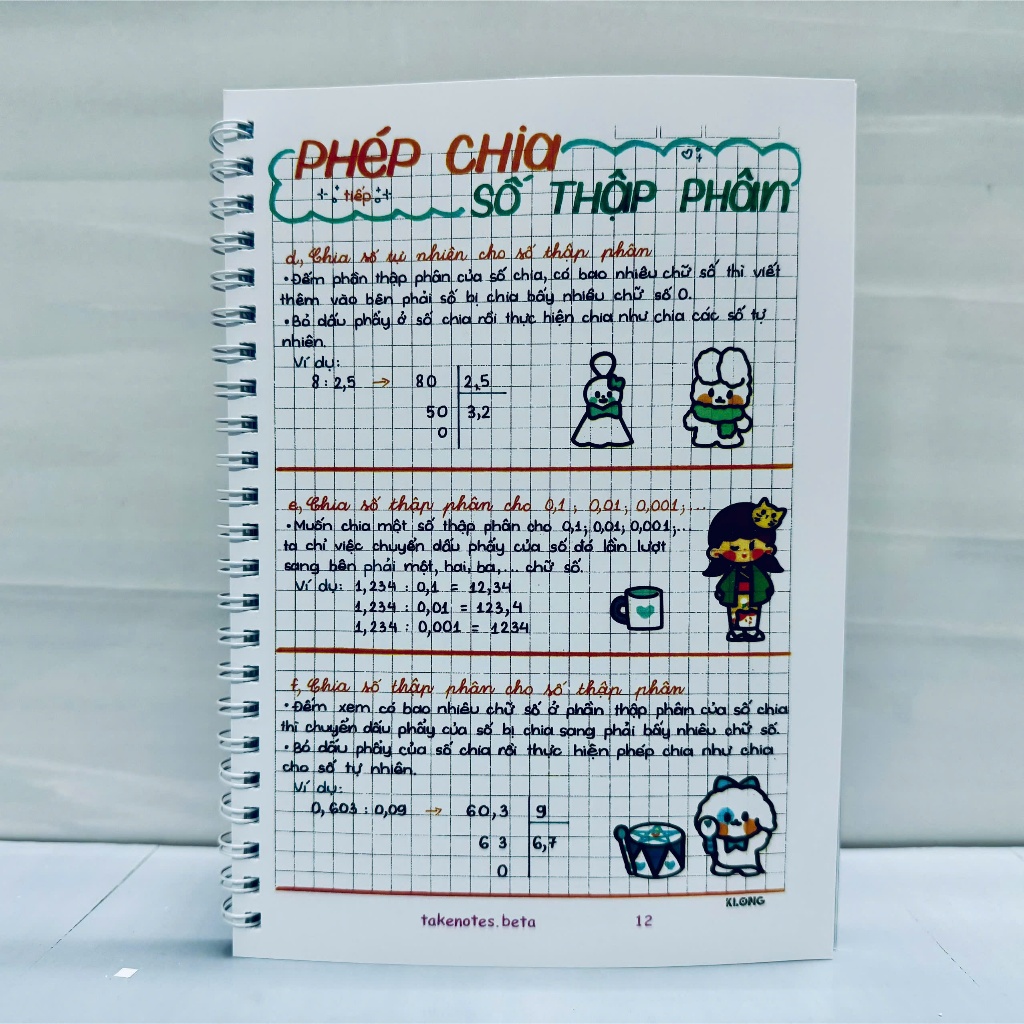 PHÉP CHIA
tiếp
SỐ THẬP PHÂN
d, Chia số tự nhiên cho số thập phân
• Đếm phần thập phân của số chia, có bao nhiêu chữ số thì viết
thêm vào bên phải số bị chia bấy nhiêu chữ số 0.
• Bỏ dấu phẩy ở số chia rồi thực hiện chia như chia các số tự
nhiên.
Ví dụ:
8 : 2,5 → 80 2,5
50 3,2
0
e, Chia số thập phân cho 0,1 ; 0,01; 0,001;...
• Muốn chia một số thập phân cho 0,1; 0,01; 0,001;...
ta chỉ việc chuyển dấu phẩy của số đó lần lượt
sang bên phải một, hai, ba,... chữ số.
Ví dụ: 1,234 : 0,1 = 12,34
1,234 : 0,01 = 123,4
1,234 : 0,001 = 1234
f, Chia số thập phân cho số thập phân
• Đếm xem có bao nhiêu chữ số ở phần thập phân của số chia
thì chuyển dấu phẩy của số bị chia sang phải bấy nhiêu chữ số.
• Bỏ dấu phẩy của số chia rồi thực hiện phép chia như chia
cho số tự nhiên.
Ví dụ:
0,603 : 0,09 → 60,3 9
6 3 6,7
0
KLONG
takenotes.beta 12